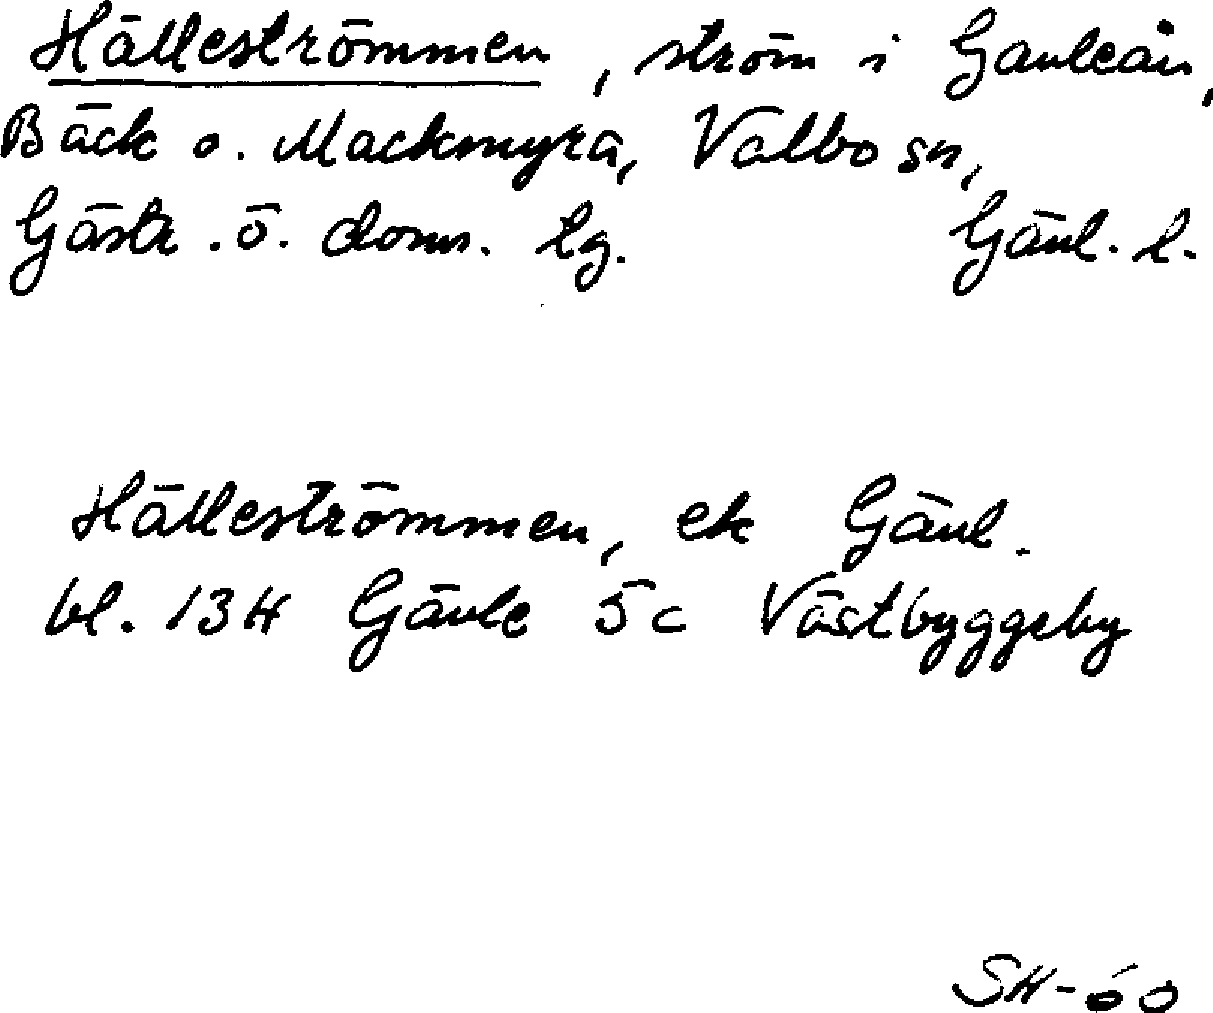 Hälleströmmen, ström i Gavleån,
Bäck o. Mackmyra, Valbo sn,
Gästr. ö. doms. lg. Gävl. l.
Hälleströmmen, ek Gävl.
bl. 13H Gävle 5c Västbyggeby
SH-60